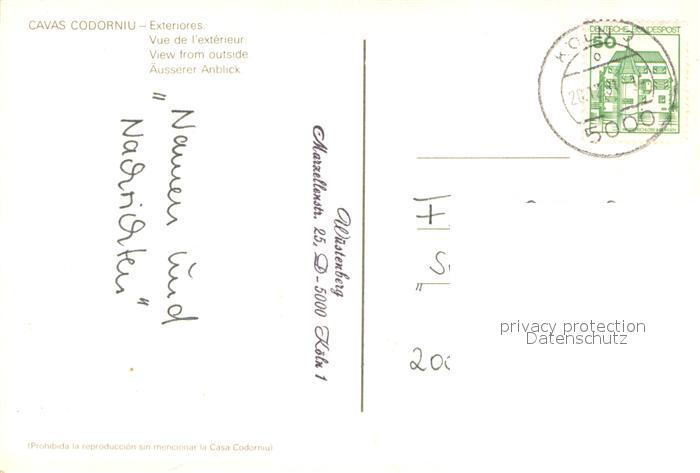 CAVAS CODORNIU – Exteriores.
Vue de l'extérieur.
View from outside.
Äusserer Anblick.
„Namen und
Nachrichten"
Wüstenberg
Marzellenstr. 25, D-5000 Köln 1
DEUTSCHE BUNDESPOST
50
KÖLN
5000
F
S
"
200
privacy protection
Datenschutz
(Prohibida la reproducción sin mencionar la Casa Codorniu)